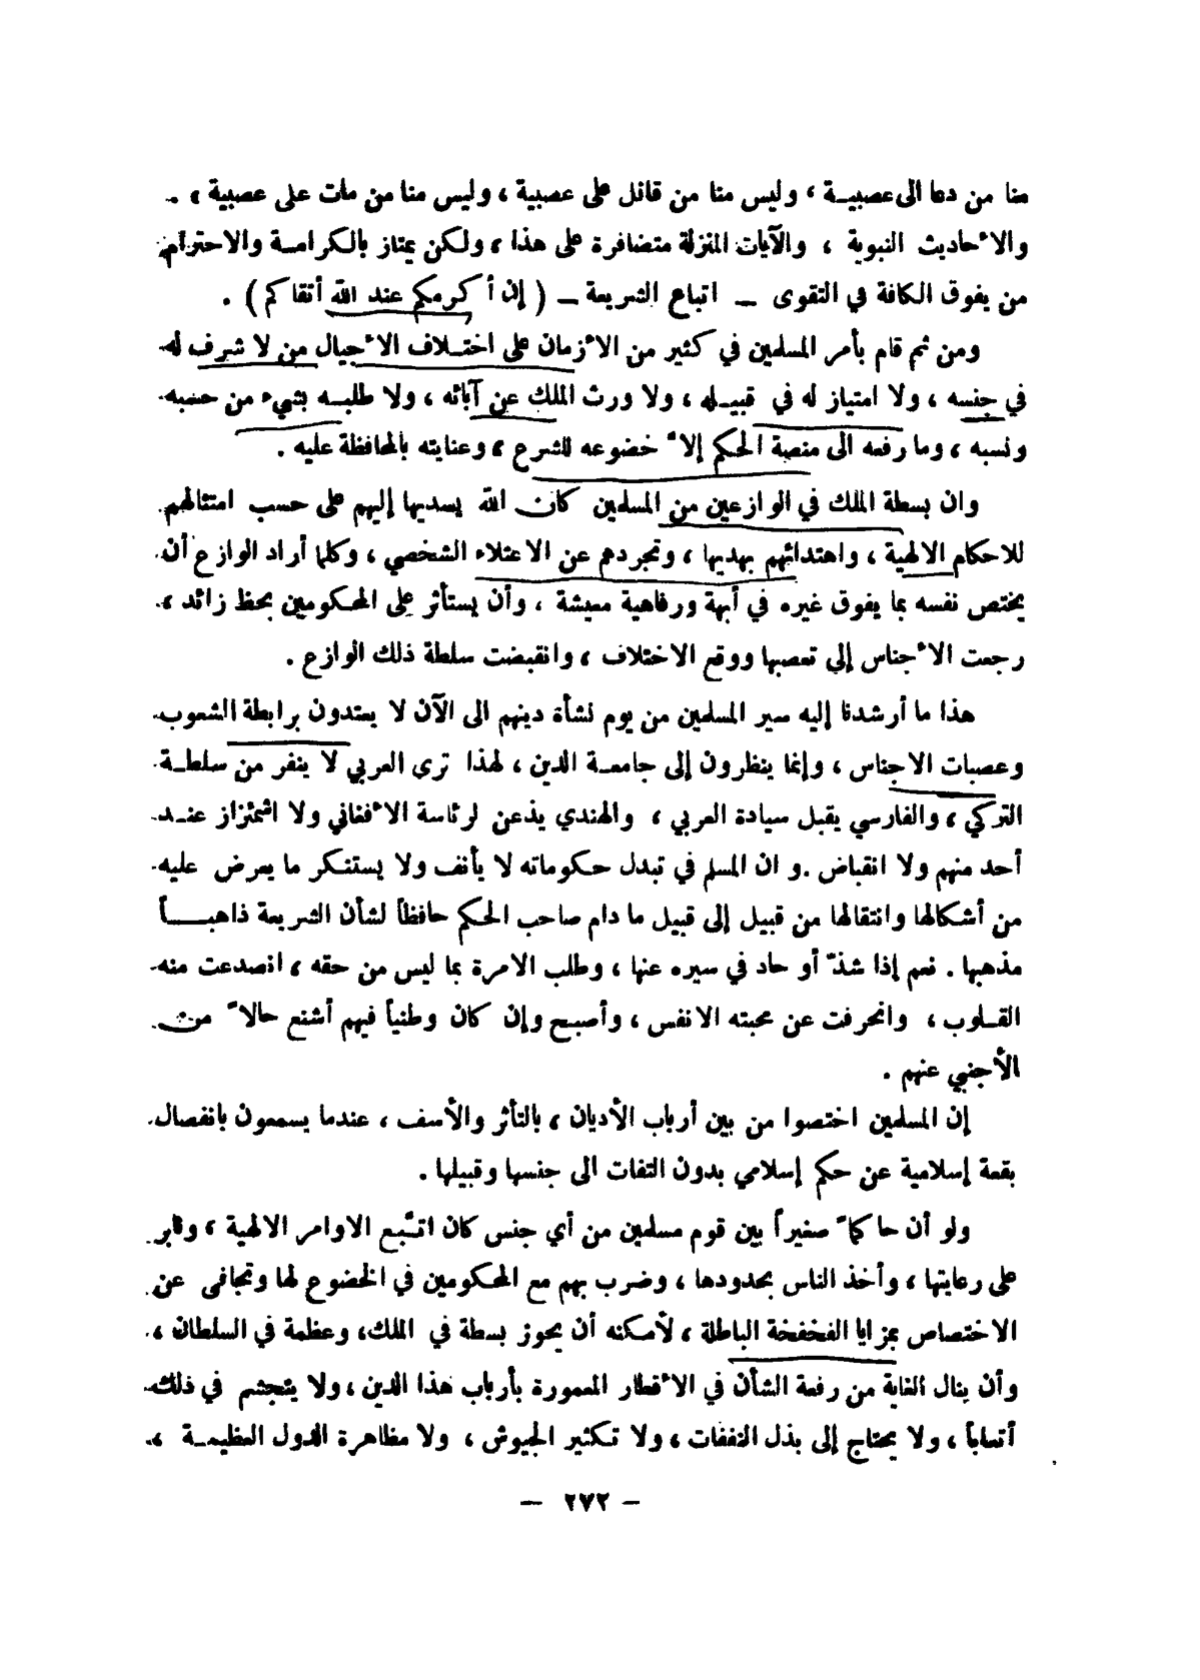 منا من دعا الى عصبيـة ، وليس منا من قاتل على عصبية ، وليس منا من مات على عصبية » .
والاحاديث النبوية ، والآيات المنزلة متضافرة على هذا ، ولكن يمتاز بالكرامـة والاحترام
من يفوق الكافة في التقوى ــ اتباع الشريعة ــ ( إن أكرمكم عند الله أتقاكم ) .
ومن ثم قام بأمر المسلمين في كثير من الأزمان على اختـلاف الأجيال من لا شرف له
في جنسه ، ولا امتياز له في قبيـله ، ولا ورث الملك عن آبائه ، ولا طلبـه بشيء من حسبه
ونسبه ، وما رفعه الى منصبة الحكم إلاّ خضوعه للشرع ، وعنايته بالمحافظة عليه .
وان بسطة الملك في الوازعين من المسلمين كان الله يسديها إليهم على حسب امتثالهم
للاحكام الالهية ، واهتدائهم بهديها ، وتجردهم عن الاعتلاء الشخصي ، وكلما أراد الوازع أن
يختص نفسه بما يفوق غيره في أبهة ورفاهية معيشة ، وأن يستأثر على المحكومين بحظ زائد ،
رجعت الأجناس إلى تعصبها ووقع الاختلاف ، وانقبضت سلطة ذلك الوازع .
هذا ما أرشدنا إليه سير المسلمين من يوم نشأة دينهم الى الآن لا يعتدون برابطة الشعوب
وعصبات الاجناس ، وإنما ينظرون إلى جامعـة الدين ، لهذا ترى العربي لا ينفر من سلطـة
التركي ، والفارسي يقبل سيادة العربي ، والهندي يذعن لرئاسة الأفغاني ولا اشمئزاز عنـد
أحد منهم ولا انقباض . و ان المسلم في تبدل حكوماته لا يأنف ولا يستنكر ما يعرض عليه
من أشكالها وانتقالها من قبيل إلى قبيل ما دام صاحب الحكم حافظاً لشأن الشريعة ذاهبـــاً
مذهبها . نعم إذا شذّ أو حاد في سيره عنها ، وطلب الامرة بما ليس من حقه ، انصدعت منه
القـلوب ، وانحرفت عن محبته الانفس ، وأصبح وإن كان وطنياً فيهم أشنع حالاً من
الأجنبي عنهم .
إن المسلمين اختصوا من بين أرباب الأديان ، بالتأثر والأسف ، عندما يسمعون بانفصال
بقعة إسلامية عن حكم إسلامي بدون التفات الى جنسها وقبيلها .
ولو أن حاكماً صغيراً بين قوم مسلمين من أي جنس كان اتّبع الاوامر الالهية ، وثابر
على رعايتها ، وأخذ الناس بحدودها ، وضرب بهم مع المحكومين في الخضوع لها وتجافى عن
الاختصاص بمزايا الفخفخة الباطلة ، لأمكنه أن يحوز بسطة في الملك، وعظمة في السلطان ،
وأن ينال الغاية من رفعة الشأن في الأقطار المعمورة بأرباب هذا الدين ، ولا يتجشم في ذلك
أتعاباً ، ولا يحتاج إلى بذل النفقات ، ولا تكثير الجيوش ، ولا مظاهرة الدول العظيمـة ،
— ٢٧٢ —